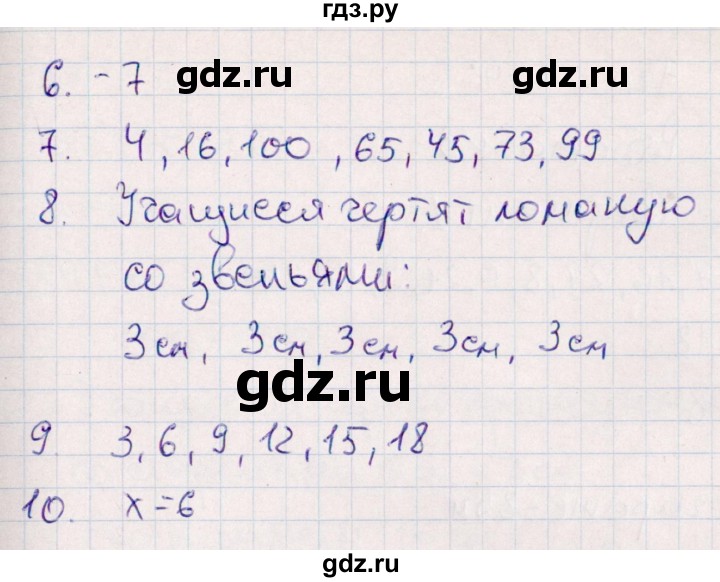 гдз.ру
6. -7
gdz.ru
gdz.ru
7. 4, 16, 100, 65, 45, 73, 99
8. Учащиеся чертят ломаную
со звеньями:
3см, 3см, 3см, 3см, 3см
gdz.ru
9 3, 6, 9, 12, 15, 18
10. x=6
gdz.ru